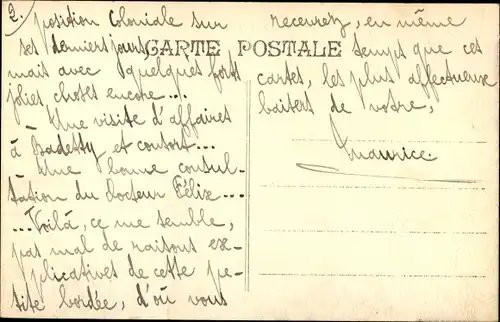 2.
position Coloniale sur
ses derniers jours,
mais avec quelques forts
jolies choses encore...
– Une visite d'affaires
à Badetty et consort...
– Une bonne consul-
tation du docteur Félix....
...Voilà, ce me semble,
pas mal de raisons ex-
plicatives de cette pe-
tite bordée, d'où vous
CARTE POSTALE
recevrez, en même
temps que ces
cartes, les plus affectueux
baisers de votre,
Maurice.